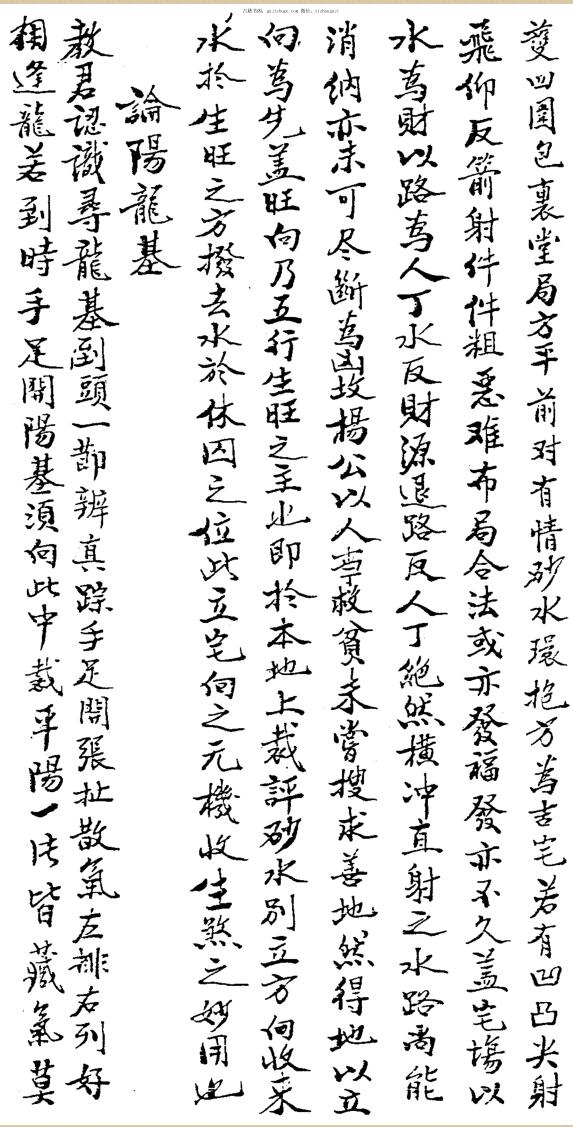 古籍书阁：gujishuge.com 微信：
蔓四圍包裹堂局方平前对有情砂水環抱方為吉宅若有凹凸尖射
飛仰反箭射件件粗惡难布局合法或亦發福發亦不久盖宅塲以
水為財以路為人丁水反財源退路反人丁絕然橫冲直射之水路尚能
消納亦未可尽断為凶故楊公以人專救貧未嘗搜求善地然得地以立
向為先盖旺向乃五行生旺之主也即扵本地上裁評砂水別立方向收来
水扵生旺之方撥去水於休囚之位此立宅向之元機收生煞之妙用也
論陽龍基
教君認識尋龍基到頭一節辨真踪手足開張扯散氣左排右列好
相逢龍若到時手足開陽基湏向此中裁平陽一法皆藏氣莫